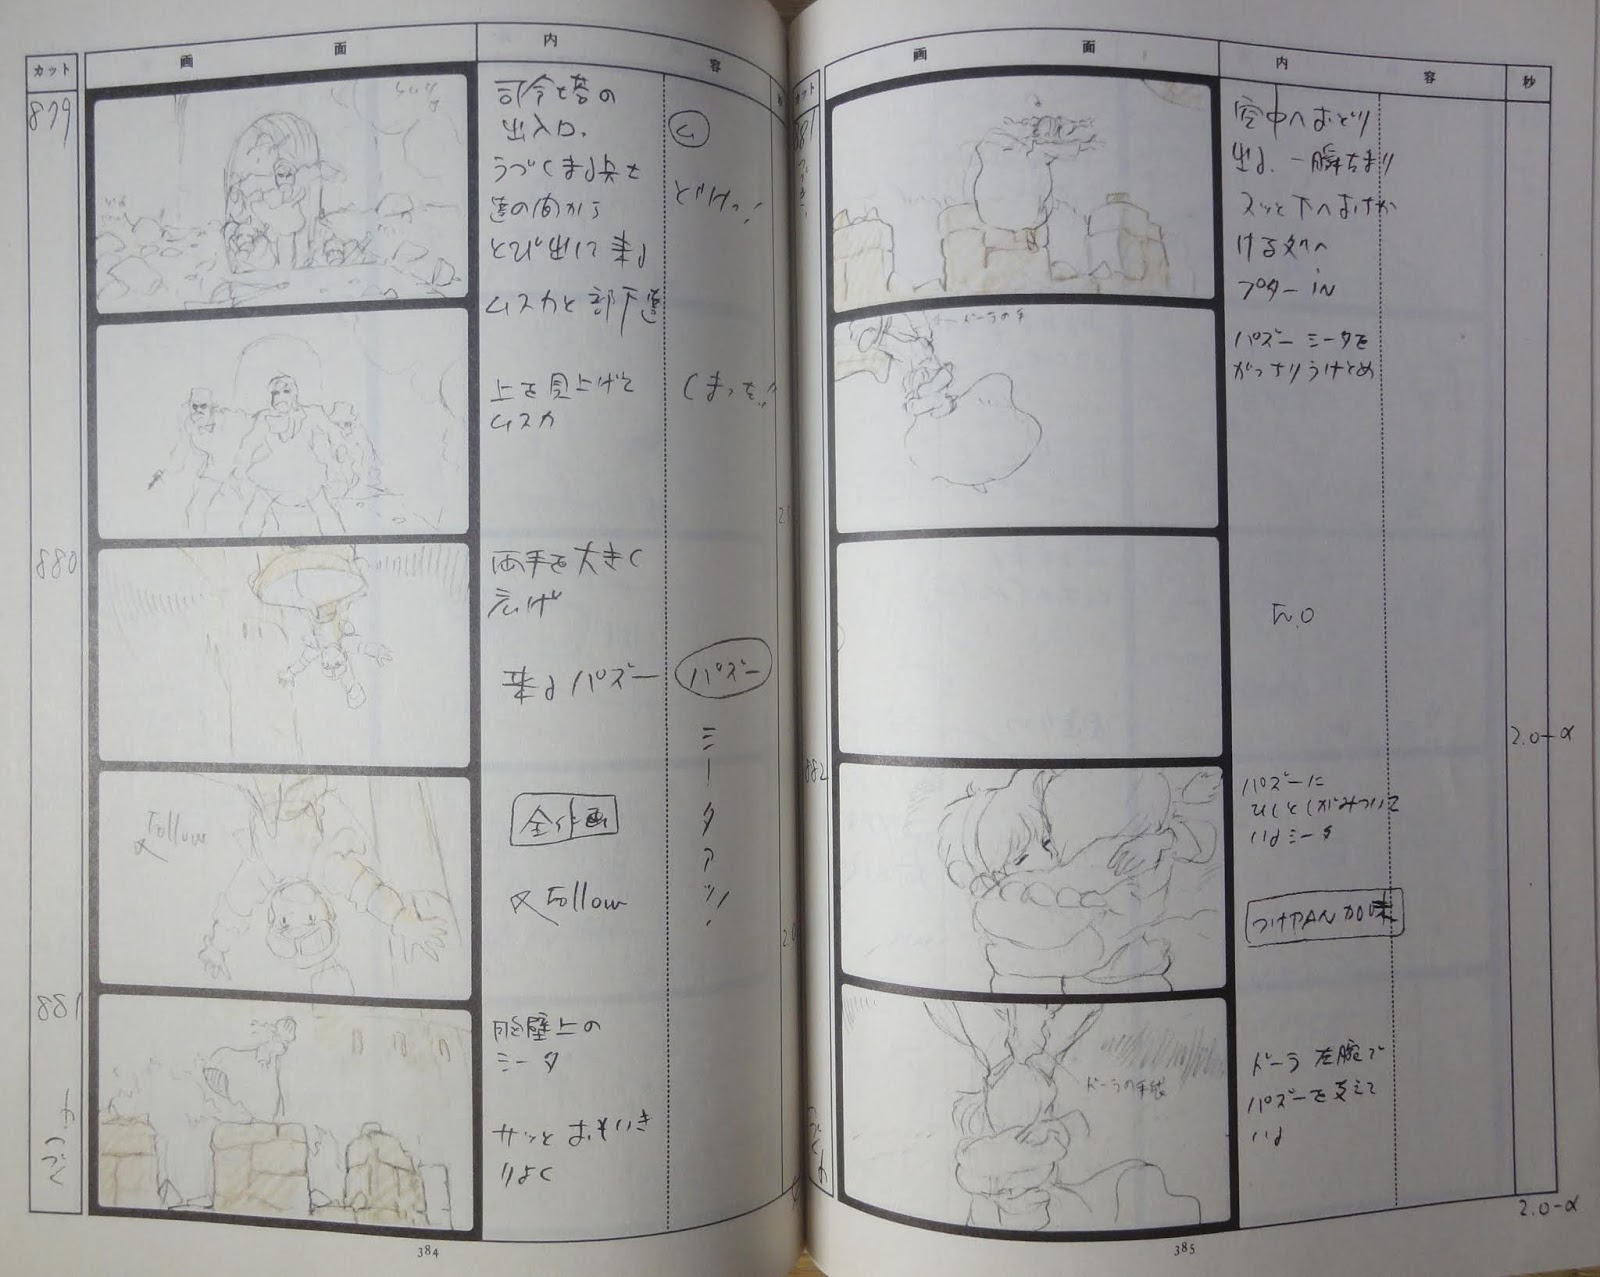 カット
画面
内容
879
司令塔の
出入口、
うづくまる兵を
達の間から
とび出して来る
ムスカと部下達
ム
どけっ!
上を見上げて
ムスカ
しまった!!
880
両手を大きく
広げ
来るパズー
パズー
ミータアッ!
Follow
全作画
Follow
881
胸壁上の
シータ
サッとおもいき
りよく
つづく
384
カット
画面
内容
秒
881
つづき
空中へおどり
出る、一瞬ちまり
スッと下へおけか
ける処へ
フプター in
ドーラの手
パズー シータを
がっちりうけとめ
F.O
2.0-α
882
パズーに
ひしとしがみついて
いるシータ
つけPAN加味
ドーラの手袋
ドーラ 左腕で
パズーを支えて
いる
つづく
2.0-α
385